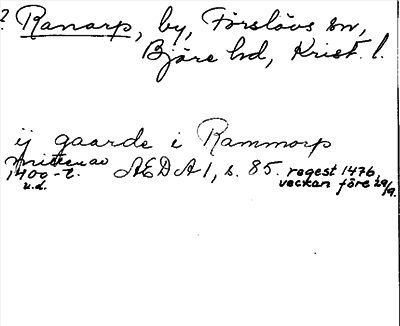 ? Ranarp, by, Förslövs sn,
Bjäre hd, Krist. l.
ij gaarde i Rammorp
mitten av
1400-t.
u.d.
ÆDA 1, s. 85. regest 1476,
veckan före 29/9.